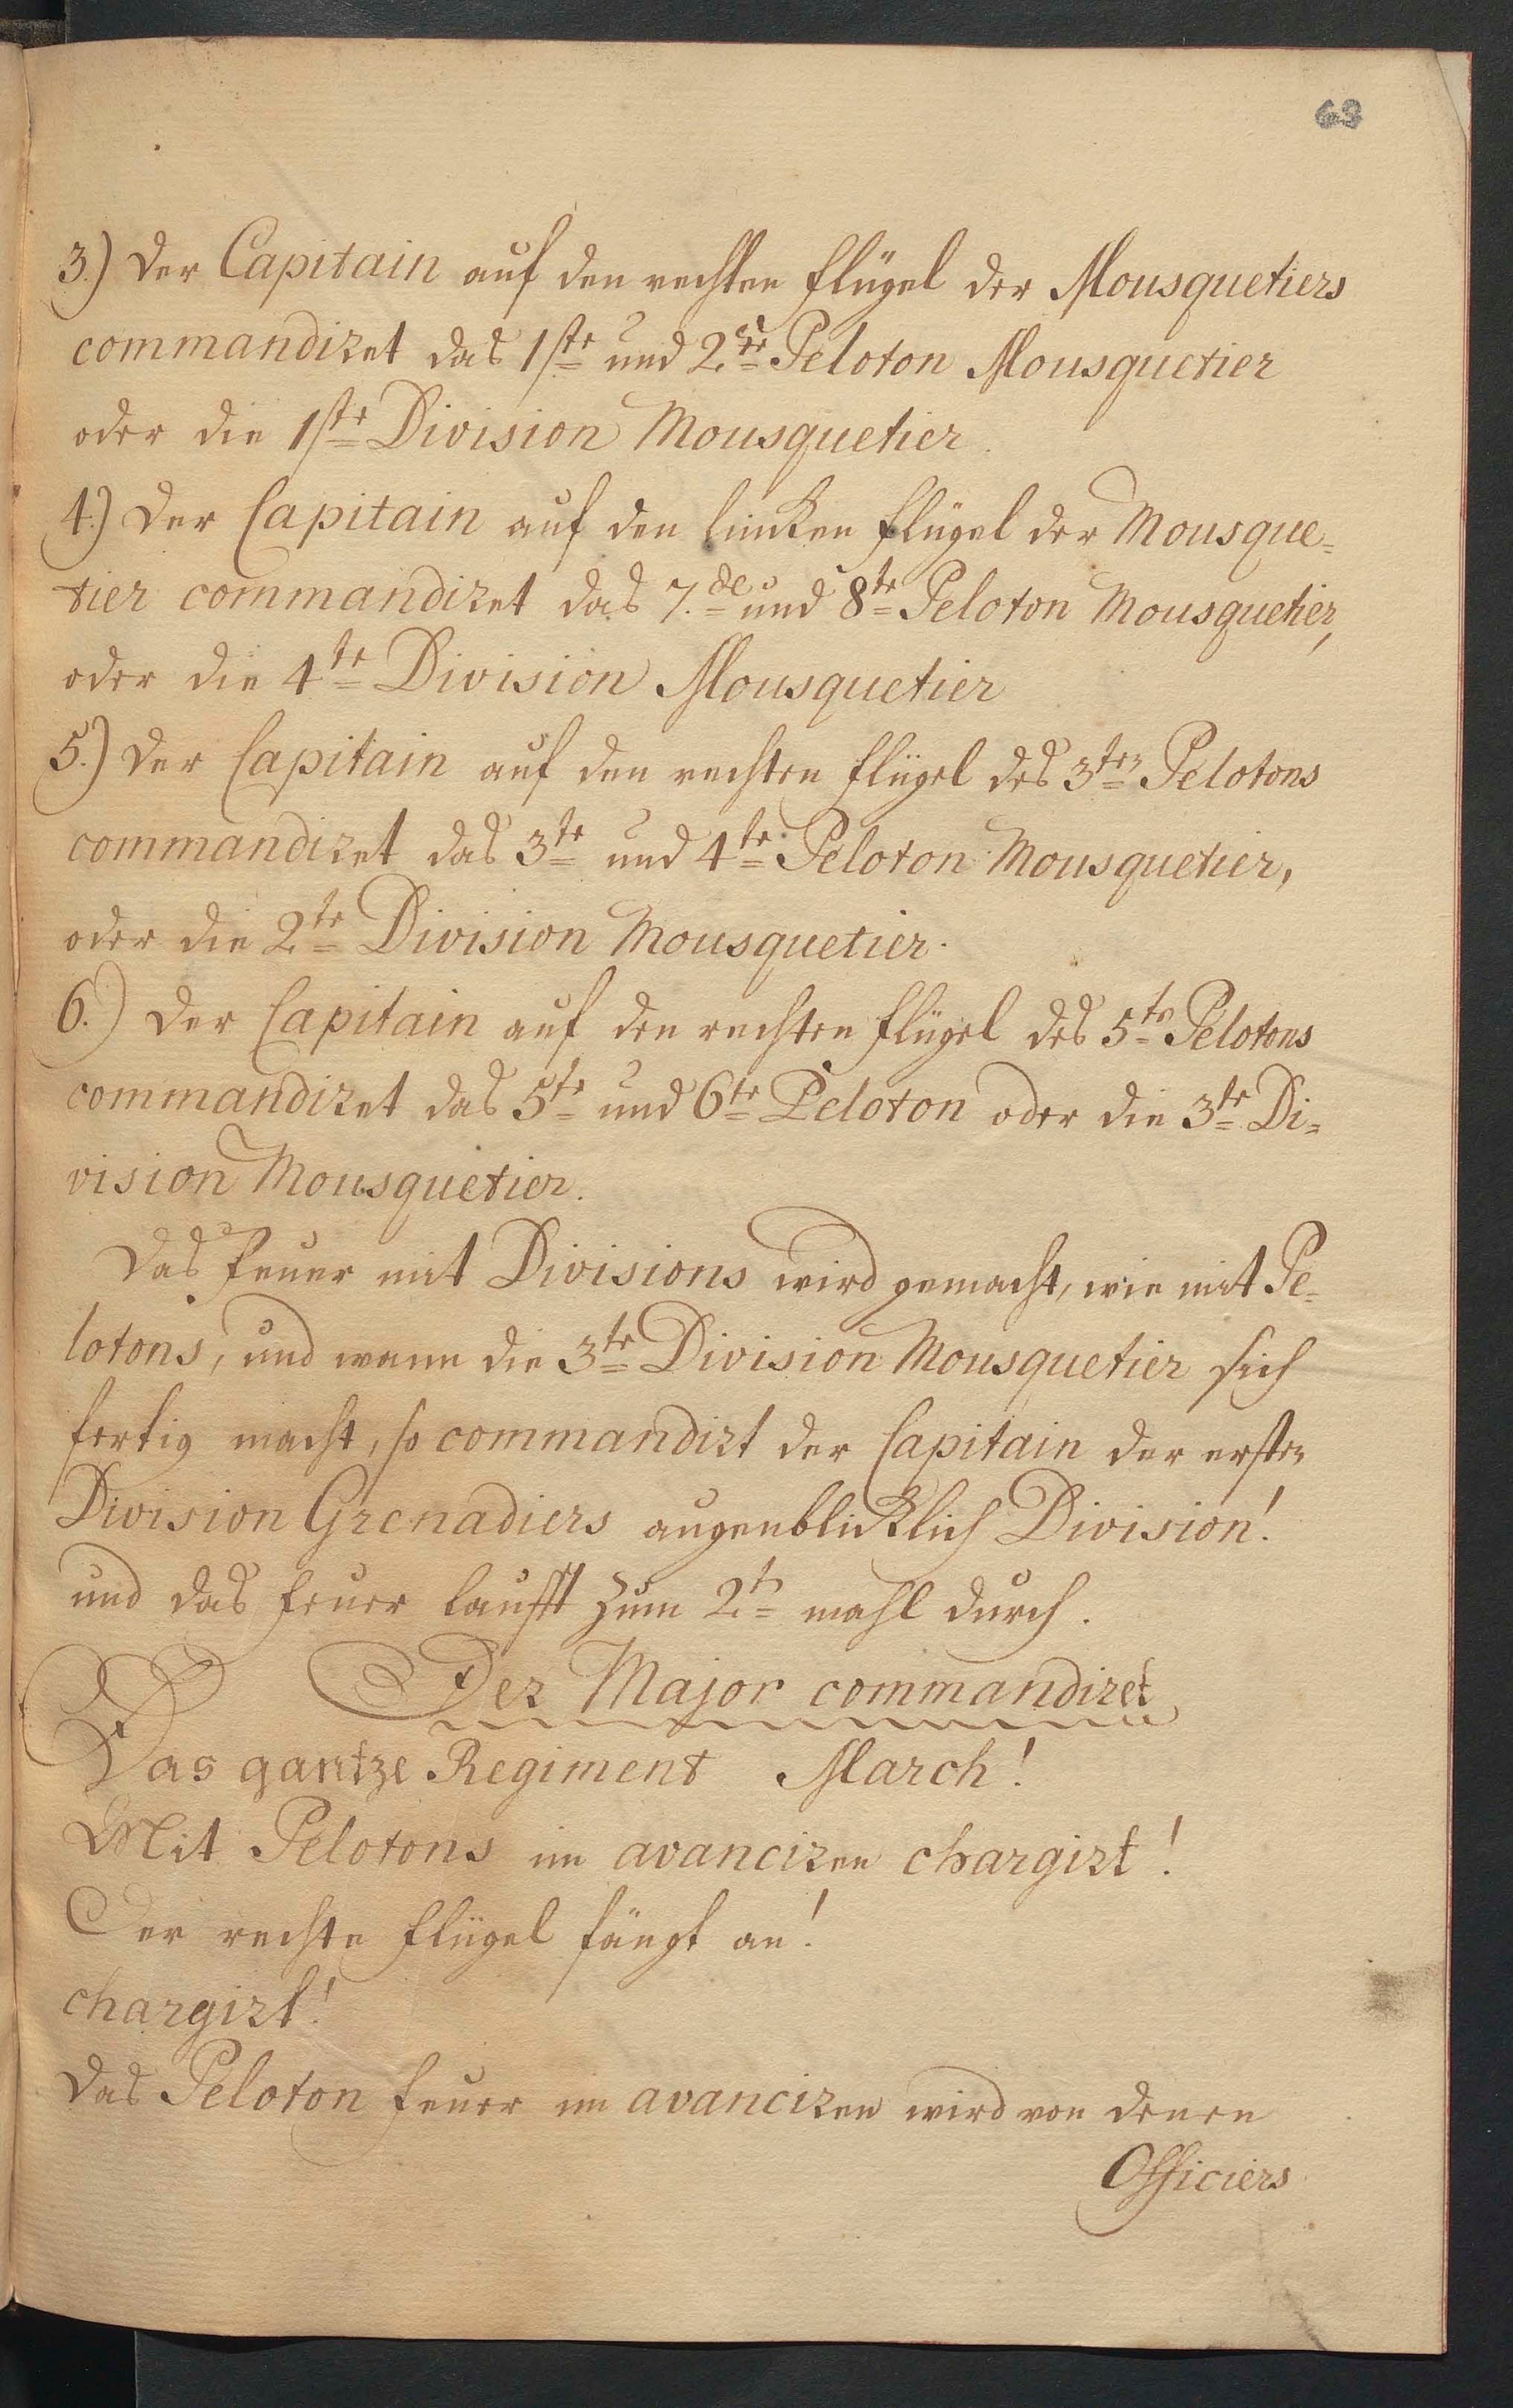 63
3.) der Capitain auf den rechten flügel der Mousquetiers
commandiret das 1ste und 2te Peloton Mousquetier
oder die 1ste Division Mousquetier.
4.) der Capitain auf den lincken flügel der Mousque=
tier commandiret das 7.de und 8te Peloton Mousquetier,
oder die 4te Division Mousquetier
5.) der Capitain auf den rechten flügel des 3ten Pelotons
commandiret das 3te und 4te Peloton Mousquetier,
oder die 2te Division Mousquetier.
6.) der Capitain auf den rechten flügel des 5tn Pelotons
commandiret das 5te und 6te Peloton oder die 3te Di=
vision Mousquetier.
das feuer mit Divisions wird gemacht, wie mit Pe=
lotons, und wann die 3te Division Mousquetier sich
fertig macht, so commandirt der Capitain der ersten
Division Grenadiers augenblicklich Division!
und das feuer laufft zum 2tn mahl durch.
Der Major commandiret
Das gantze Regiment March!
Mit Pelotons im avanciren chargirt!
Der rechte flügel fängt an!
chargirt!
das Peloton feuer im avanciren wird von denen
Officiers